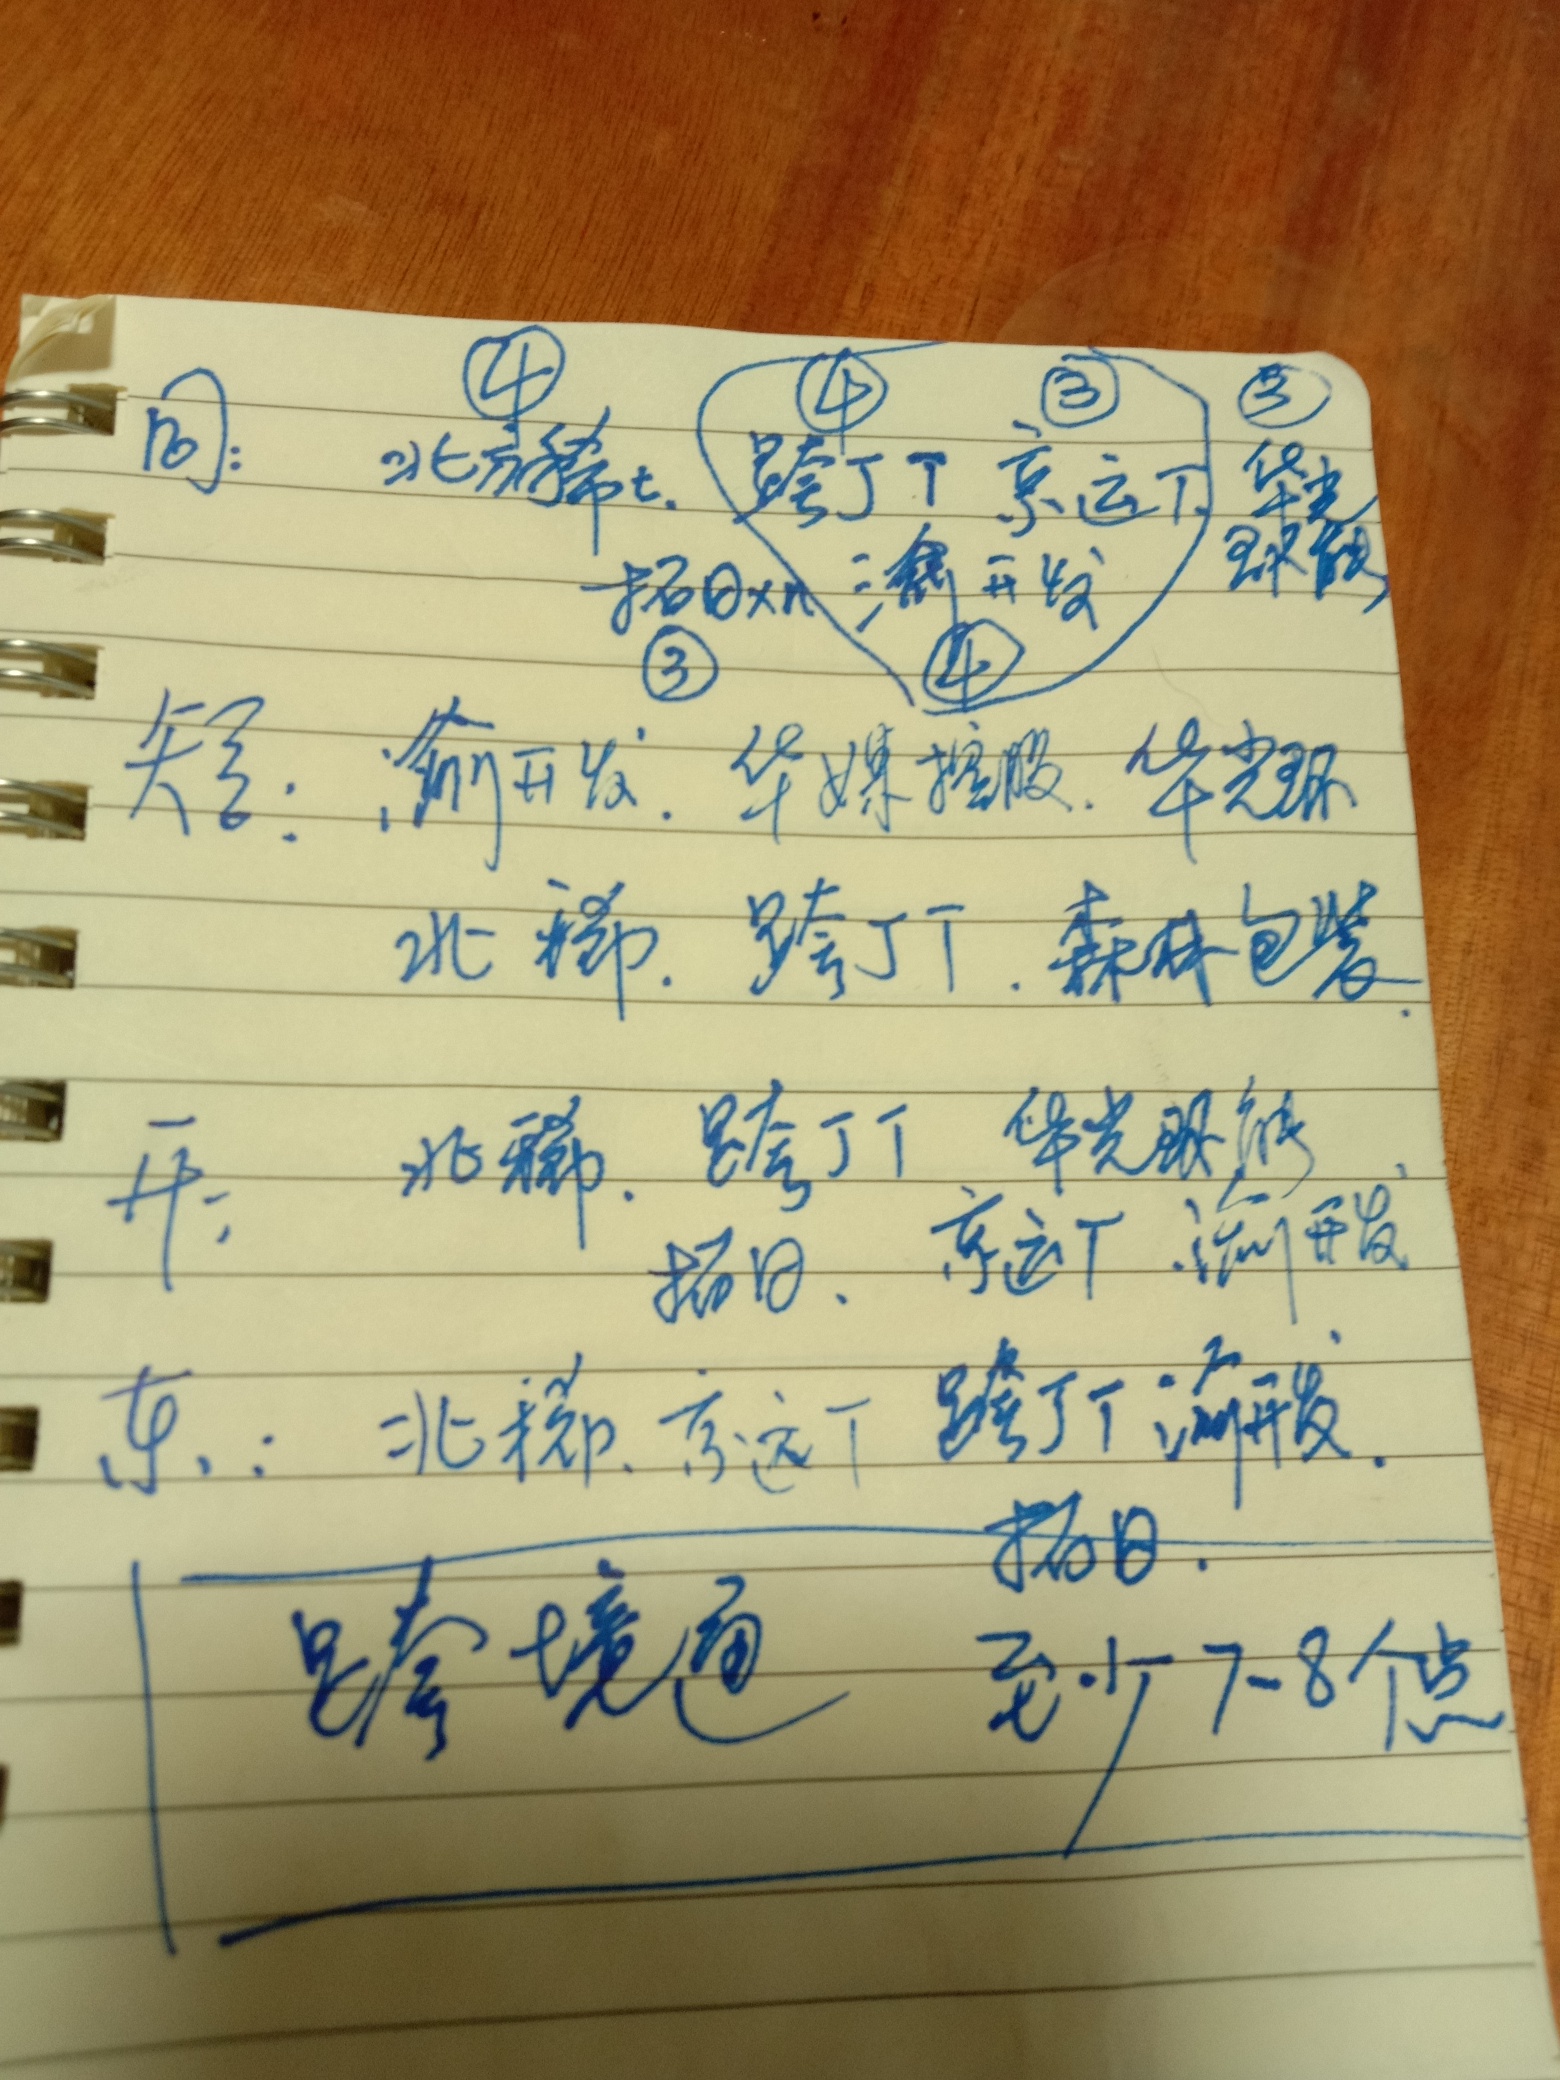 ④ ④ ③ ③
同: 北方稀土. 跨丁丅 京运丅 华光
拓日xn 渝开发 环能
③ ④
渝开发. 华媒控股. 华光环
北稀. 跨丁丅. 森林包装.
开: 北稀. 跨丁丅 华光环能
拓日. 京运丅 渝开发
东.: 北稀. 京运丅 跨丁丅 渝开发.
拓日.
跨境通 至少7-8个点